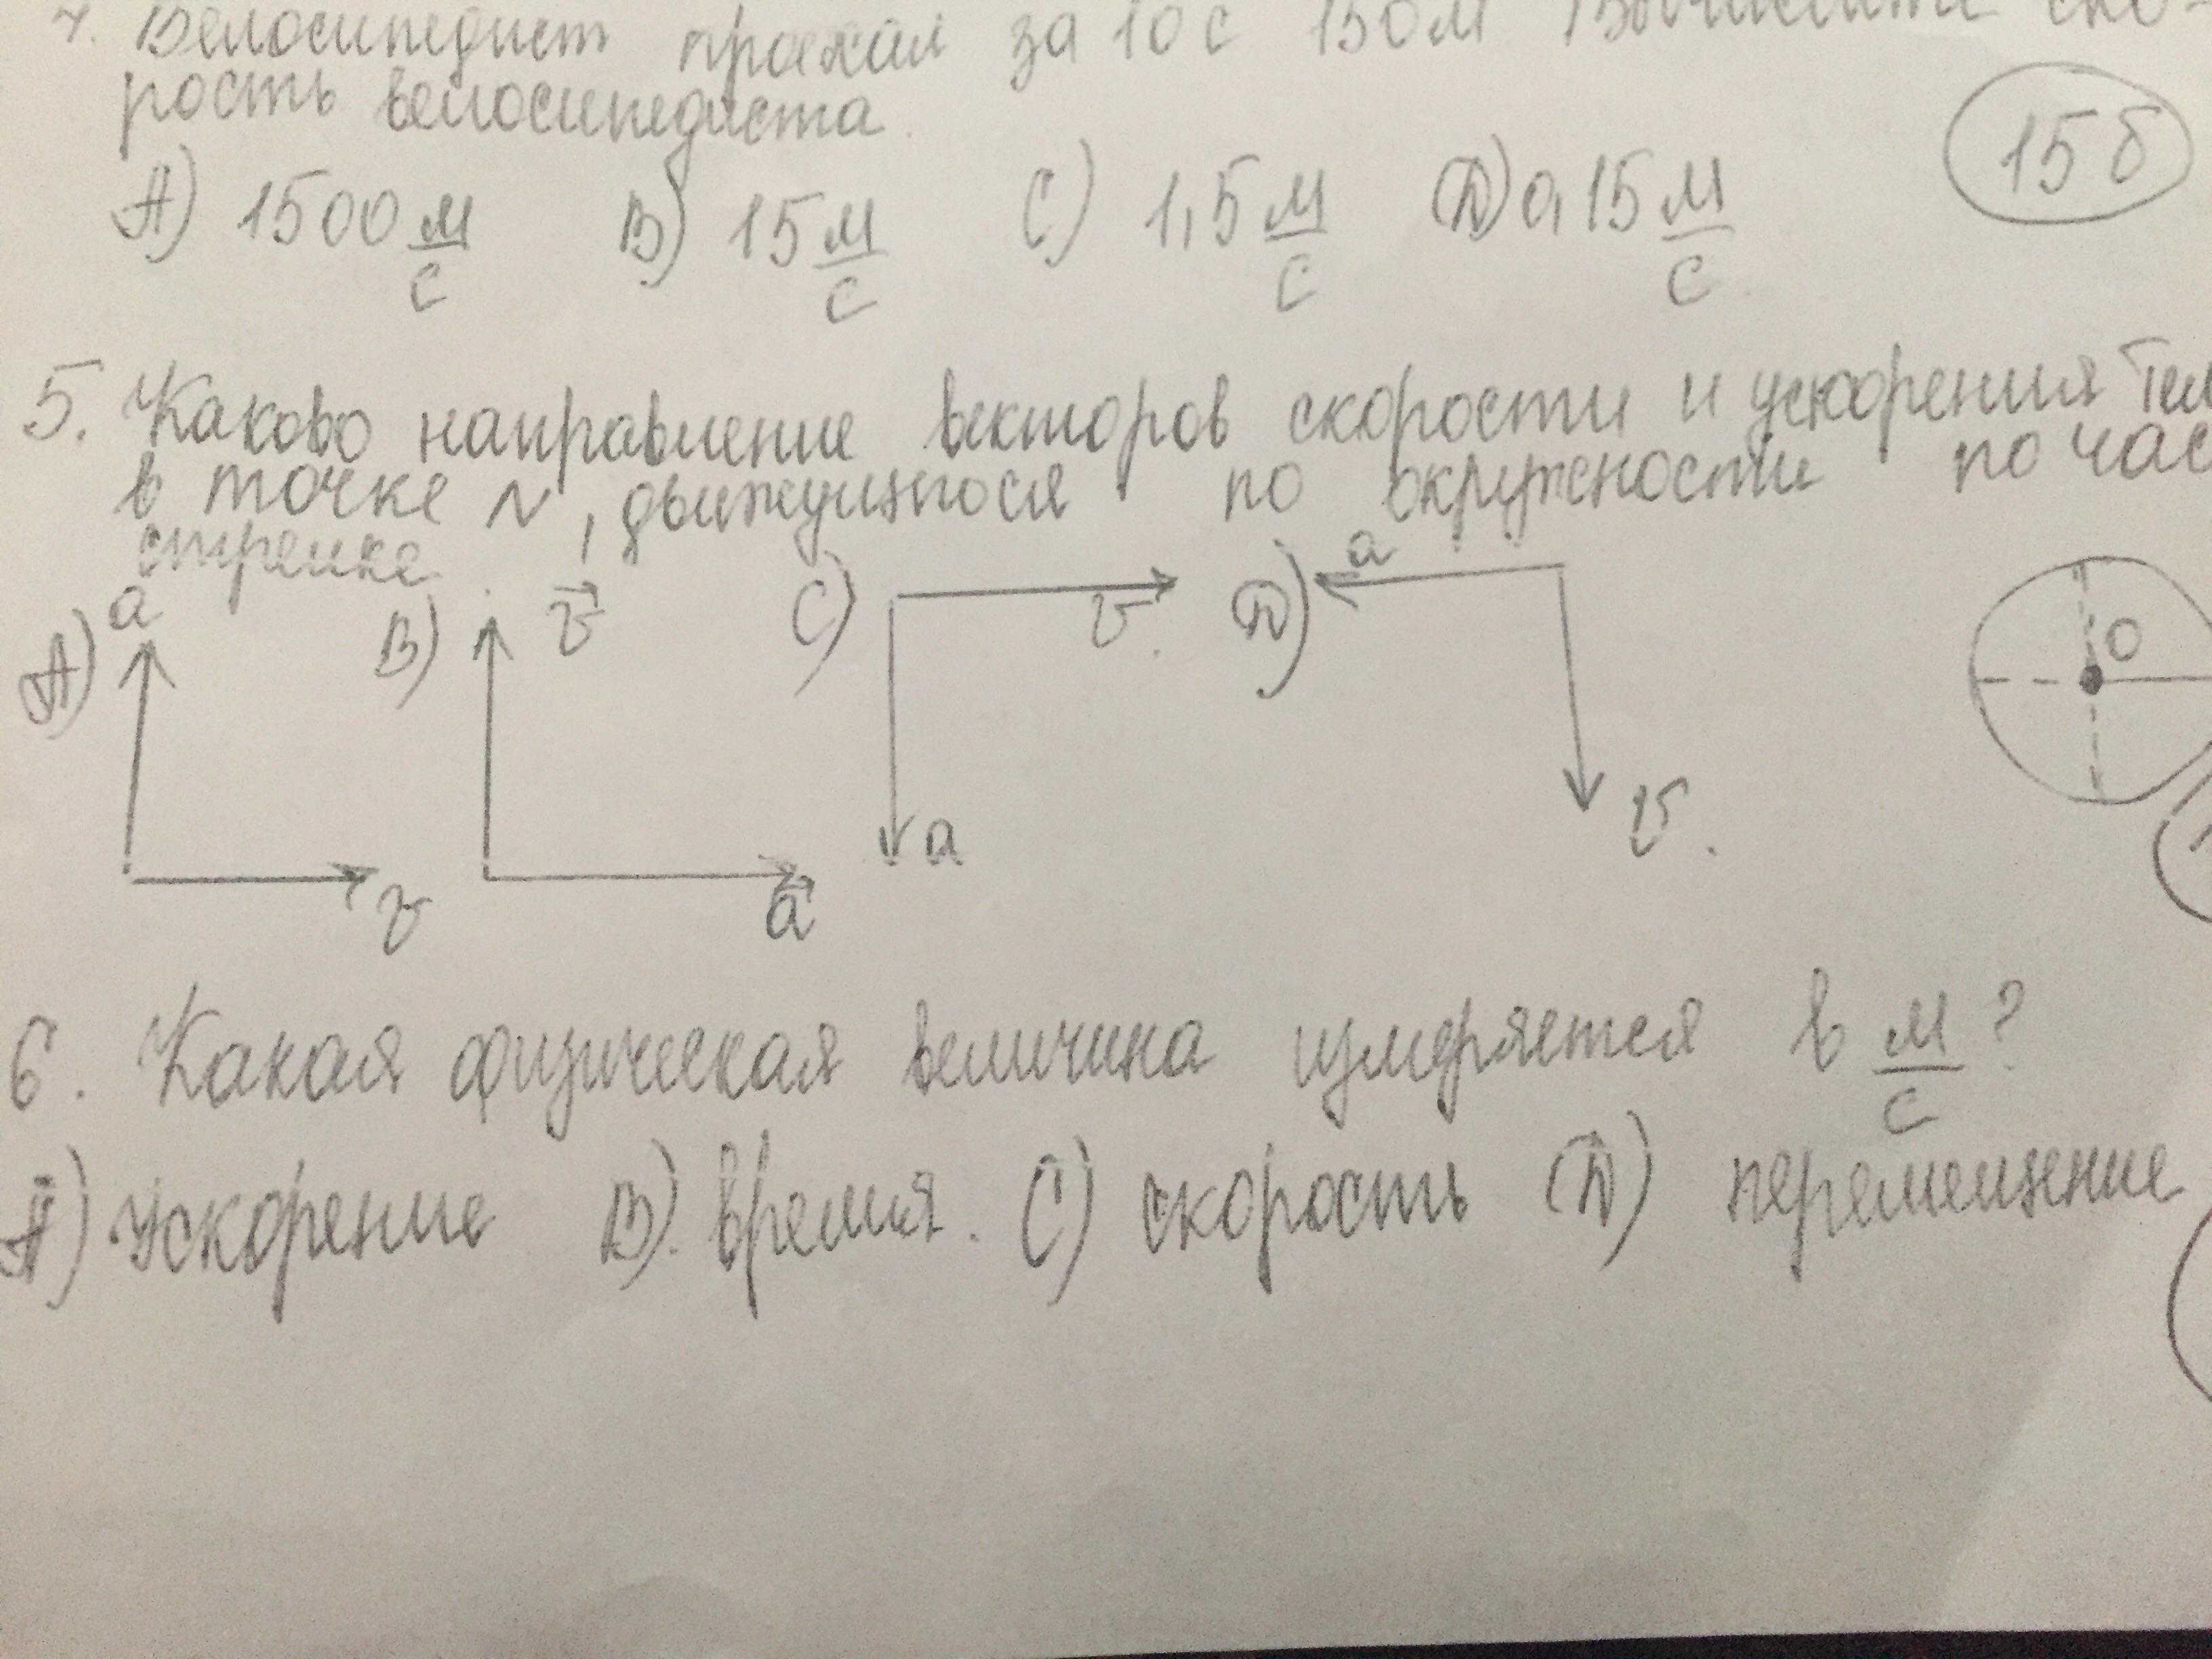 4. Велосипедист проехал за 10 с 150 м Вычислите ско-
рость велосипедиста.
А) 1500 м/с В) 15 м/с С) 1,5 м/с Д) 0,15 м/с
15 б
5. Каково направление векторов скорости и ускорения тел
в точке N, движущегося по окружности по час
стрелке.
А) a v В) v a С) v a Д) a v
O
6. Какая физическая величина измеряется в м/с ?
А) Ускорение В). время. С) скорость Д) перемещение